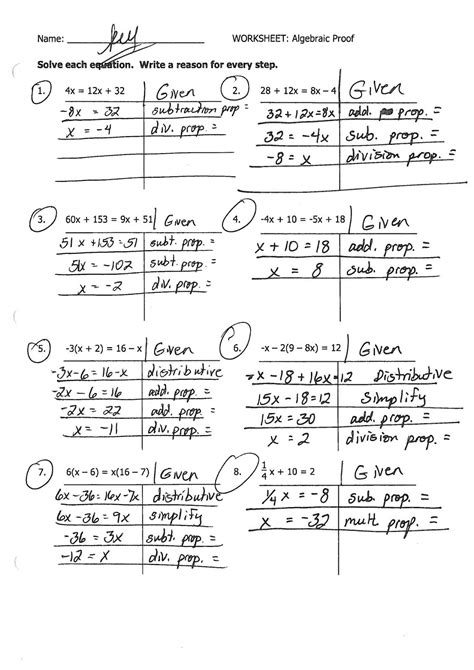 Name: key WORKSHEET: Algebraic Proof
Solve each equation. Write a reason for every step.
1. 4x = 12x + 32 Given
-8x = 32 subtraction prop =
x = -4 div. prop. =
2. 28 + 12x = 8x - 4 Given
32 + 12x = 8x add. prop. =
32 = -4x sub. prop. =
-8 = x division prop. =
3. 60x + 153 = 9x + 51 Given
51x + 153 = 51 subt. prop. =
51x = -102 subt. prop. =
x = -2 div. prop. =
4. -4x + 10 = -5x + 18 Given
x + 10 = 18 add. prop. =
x = 8 sub. prop. =
5. -3(x + 2) = 16 - x Given
-3x - 6 = 16 - x distributive
-2x - 6 = 16 add. prop. =
-2x = 22 add. prop. =
x = -11 div. prop. =
6. -x - 2(9 - 8x) = 12 Given
-x - 18 + 16x = 12 Distributive
15x - 18 = 12 Simplify
15x = 30 add. prop. =
x = 2 division prop. =
7. 6(x - 6) = x(16 - 7) Given
6x - 36 = 16x - 7x distributive
6x - 36 = 9x simplify
-36 = 3x subt. prop. =
-12 = x div. prop. =
8. 1/4 x + 10 = 2 Given
1/4 x = -8 sub. prop. =
x = -32 mult. prop. =